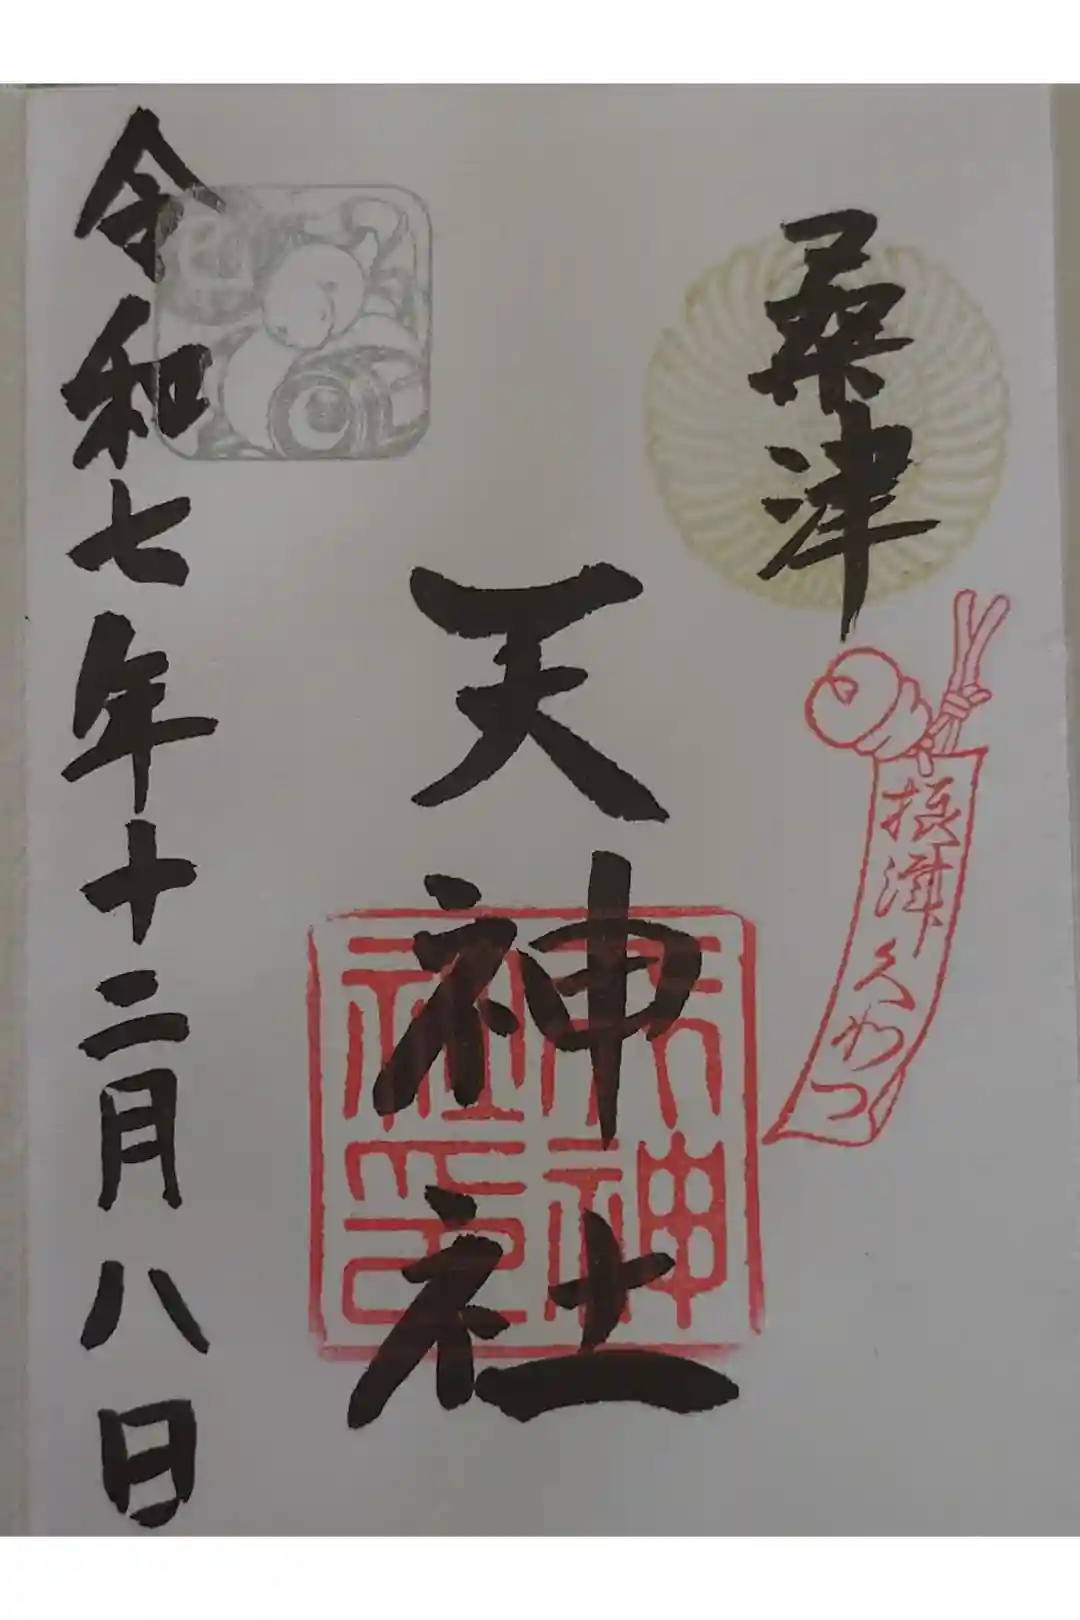 桑津
摂津くわつ
天神社
天神社印
令和七年十二月八日